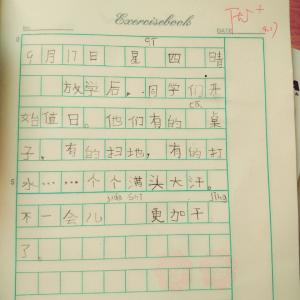 Exercisebook
NO.
DATE
qī
9月17日 星 四 晴
放学后,同学们开
cā
始值日。他们有的 桌
子,有的扫地,有的打
5
水……个个满头大汗。
jiào Shì jìng
不一会儿 更加干
了。